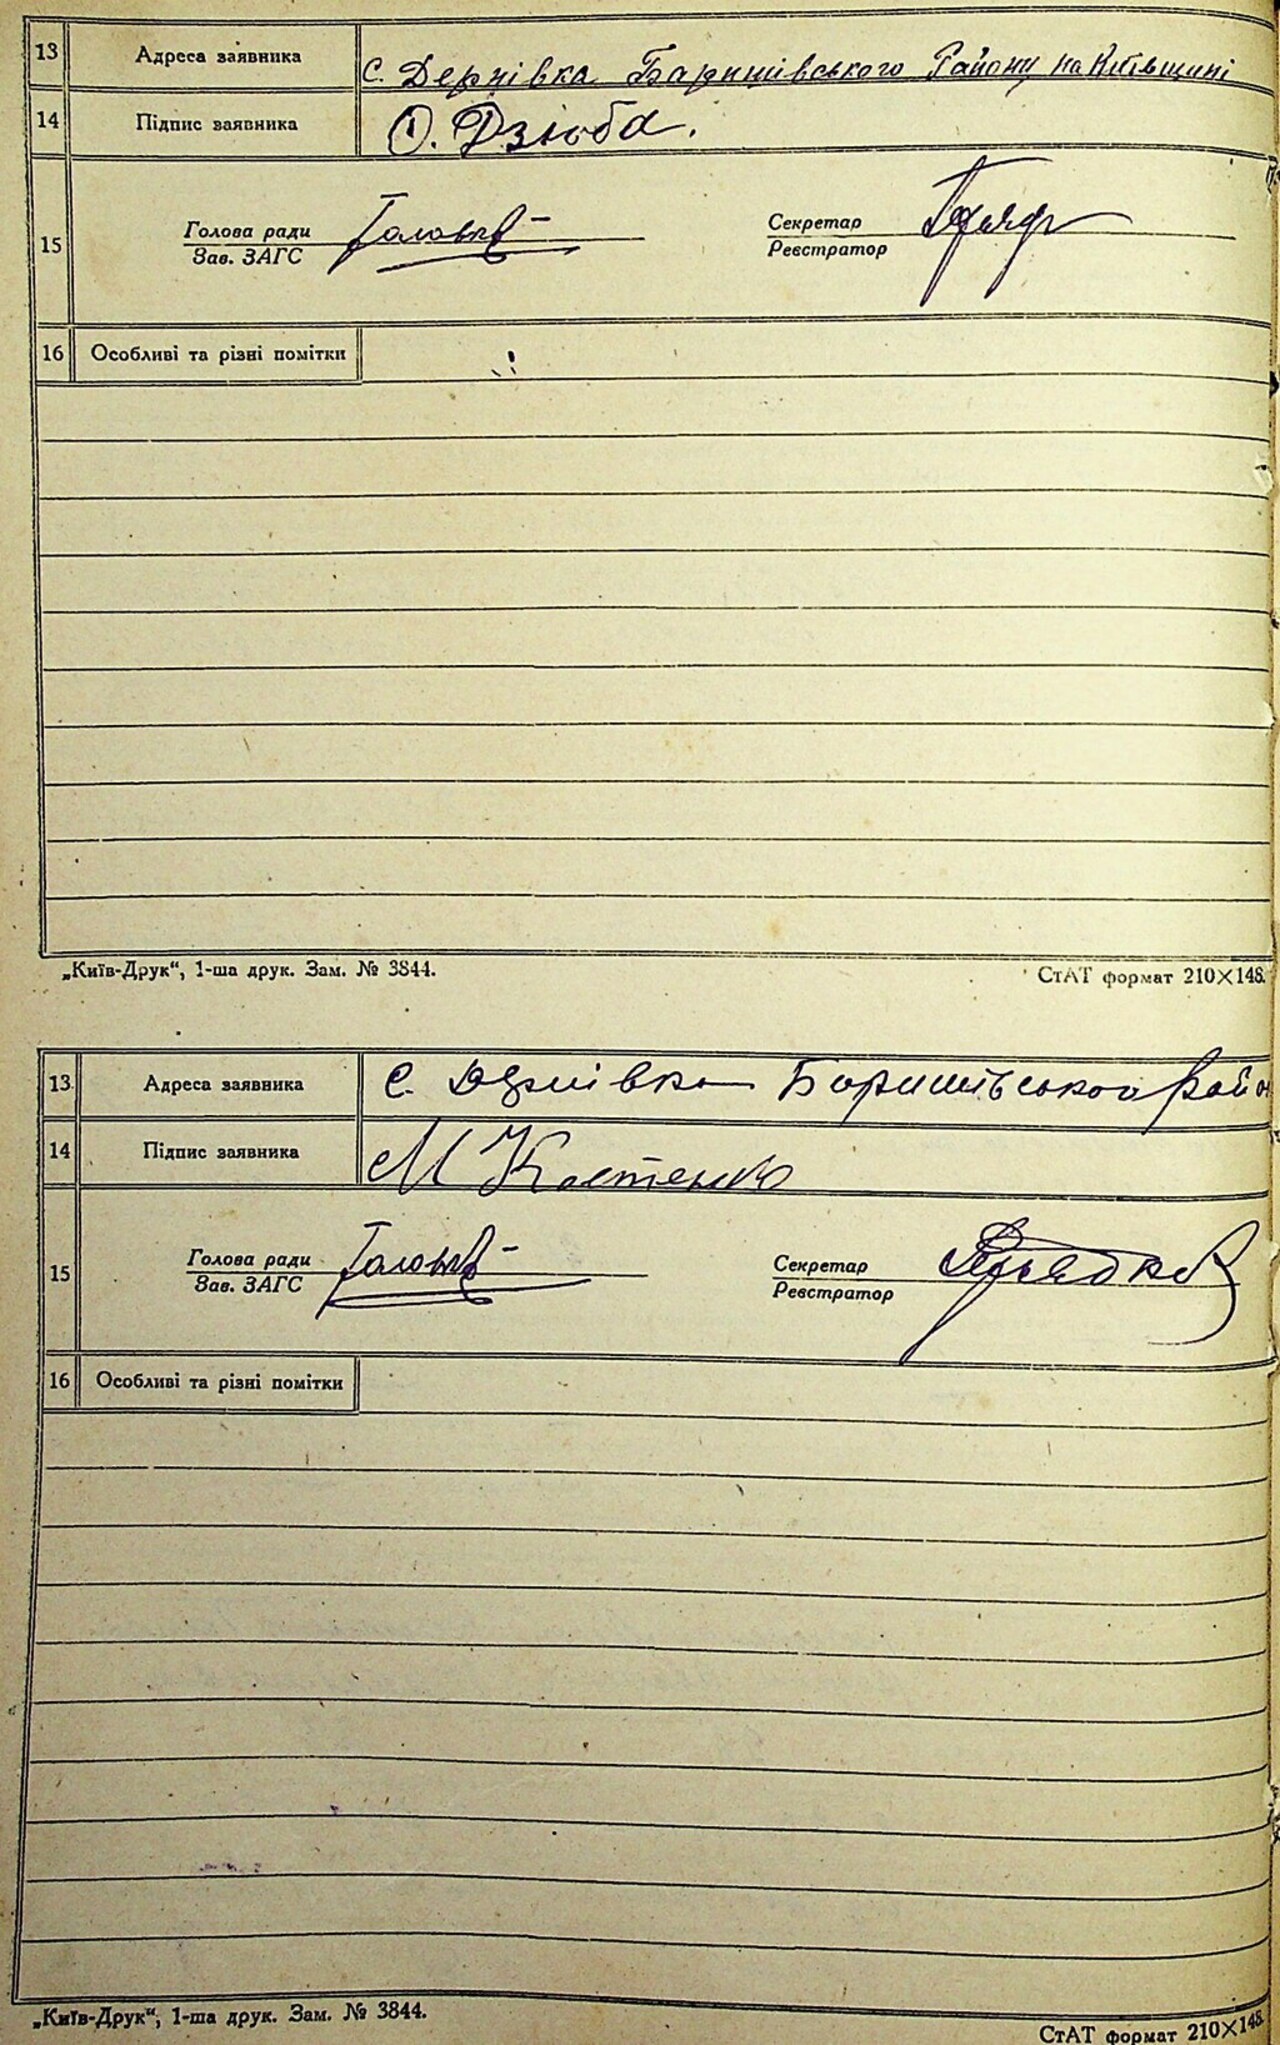 13 Адреса заявника с. Дернівка Баришівського Району на Київщині
14 Підпис заявника О. Дзюба.
Голова ради Головко Секретар
15 Зав. ЗАГС Реєстратор
16 Особливі та різні помітки
„Київ-Друк“, 1-ша друк. Зам. № 3844. СтАТ формат 210×148.
13 Адреса заявника с. Дернівка Баришівського район
14 Підпис заявника М Костенко
Голова ради Головко Секретар
15 Зав. ЗАГС Реєстратор
16 Особливі та різні помітки
„Київ-Друк“, 1-ша друк. Зам. № 3844. СтАТ формат 210×148.